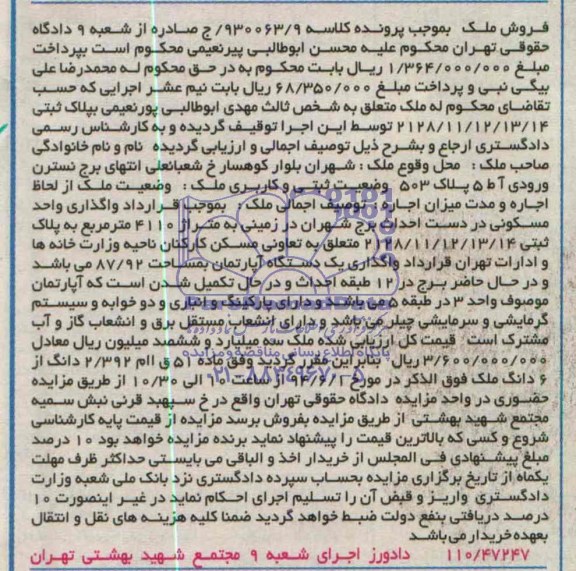 فروش ملک بموجب پرونده کلاسه ۹۳۰۰۶۳/۹/ ج صادره از شعبه ۹ دادگاه
حقوقی تهران محکوم علیه محسن ابوطالبی پیرنعیمی محکوم است بپرداخت
مبلغ ۱/۳۶۴/۰۰۰/۰۰۰ ریال بابت محکوم به در حق محکوم له محمدرضا علی
بیگی نبی و پرداخت مبلغ ۶۸/۳۵۰/۰۰۰ ریال بابت نیم عشر اجرایی که حسب
تقاضای محکوم له ملک متعلق به شخص ثالث مهدی ابوطالبی پورنعیمی بپلاک ثبتی
۲۱۲۸/۱۱/۱۲/۱۳/۱۴ توسط این اجرا توقیف گردیده و به کارشناس رسمی
دادگستری ارجاع و بشرح ذیل توصیف اجمالی و ارزیابی گردیده نام و نام خانوادگی
صاحب ملک : محل وقوع ملک : شهران بلوار کوهسار خ شعبانعلی انتهای برج نسترن
ورودی آ ط ۵ پلاک ۵۰۳ وضعیت ثبتی و کاربری ملک : وضعیت ملک از لحاظ
اجاره و مدت میزان اجاره : توصیف اجمالی ملک : بموجب قرارداد واگذاری واحد
مسکونی در دست احداث برج شهران در زمینی به متراژ ۴۱۱۰ مترمربع به پلاک
ثبتی ۲۱۲۸/۱۱/۱۲/۱۳/۱۴ متعلق به تعاونی مسکن کارکنان ناحیه وزارت خانه ها
و ادارات تهران قرارداد واگذاری یک دستگاه آپارتمان بمساحت ۸۷/۹۲ می باشد
و در حال حاضر برج در ۱۲ طبقه احداث و در حال تکمیل شدن است که آپارتمان
موصوف واحد ۳ در طبقه ۵ می باشد و دارای پارکینگ و انباری و دو خوابه و سیستم
گرمایشی و سرمایشی چیلر می باشد و دارای انشعاب مستقل برق و انشعاب گاز و آب
مشترک است قیمت کل ارزیابی شده ملک سه میلیارد و ششصد میلیون ریال معادل
۳/۶۰۰/۰۰۰/۰۰۰ ریال بنابراین مقرر گردید وفق ماده ۵۱ ق اام ۲/۳۹۲ دانگ از
۶ دانگ ملک فوق الذکر در مورخ ۹۴/۶/ از ساعت الی ۱۰/۳۰ از طریق مزایده
حضوری در واحد مزایده دادگاه حقوقی تهران واقع در خ سپهبد قرنی نبش سمیه
مجتمع شهید بهشتی از طریق مزایده بفروش برسد مزایده از قیمت پایه کارشناسی
شروع و کسی که بالاترین قیمت را پیشنهاد نماید برنده مزایده خواهد بود ۱۰ درصد
مبلغ پیشنهادی فی المجلس از خریدار اخذ و الباقی می بایستی حداکثر ظرف مهلت
یکماه از تاریخ برگزاری مزایده بحساب سپرده دادگستری نزد بانک ملی شعبه وزارت
دادگستری واریز و قبض آن را تسلیم اجرای احکام نماید در غیر اینصورت ۱۰
درصد دریافتی بنفع دولت ضبط خواهد گردید ضمنا کلیه هزینه های نقل و انتقال
بعهده خریدار می باشد
۱۱۰/۴۷۲۴۷ دادورز اجرای شعبه ۹ مجتمع شهید بهشتی تهران
پایگاه اطلاع رسانی مناقصه و مزایده